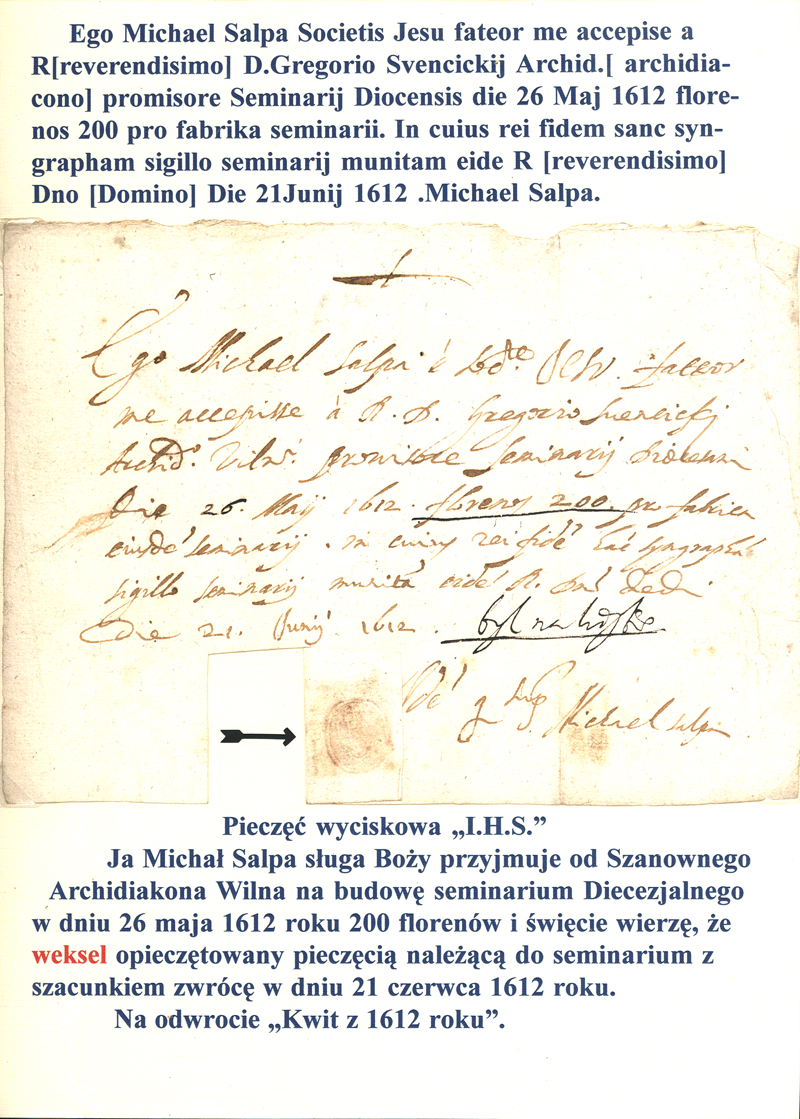 Ego Michael Salpa Societis Jesu fateor me accepise a
R[reverendisimo] D.Gregorio Svencickij Archid.[ archidia-
cono] promisore Seminarij Diocensis die 26 Maj 1612 flore-
nos 200 pro fabrika seminarii. In cuius rei fidem sanc syn-
grapham sigillo seminarij munitam eide R [reverendisimo]
Dno [Domino] Die 21Junij 1612 .Michael Salpa.
Ego Michael Salpa è Sdte. JESV. fateor
me accepisse à R. D. Gregorio
Archid. Viln. promisore Seminarij
Die 26. Maij 1612. florenos 200. pro fabrica
eiusdē seminarij. In cuius rei fidē hāc syngraphā
sigillo seminarij munitā eidē R. Dedi
die 21. Junij 1612.
Michael Salpa
Pieczęć wyciskowa „I.H.S.”
Ja Michał Salpa sługa Boży przyjmuje od Szanownego
Archidiakona Wilna na budowę seminarium Diecezjalnego
w dniu 26 maja 1612 roku 200 florenów i święcie wierzę, że
weksel opieczętowany pieczęcią należącą do seminarium z
szacunkiem zwrócę w dniu 21 czerwca 1612 roku.
Na odwrocie „Kwit z 1612 roku”.